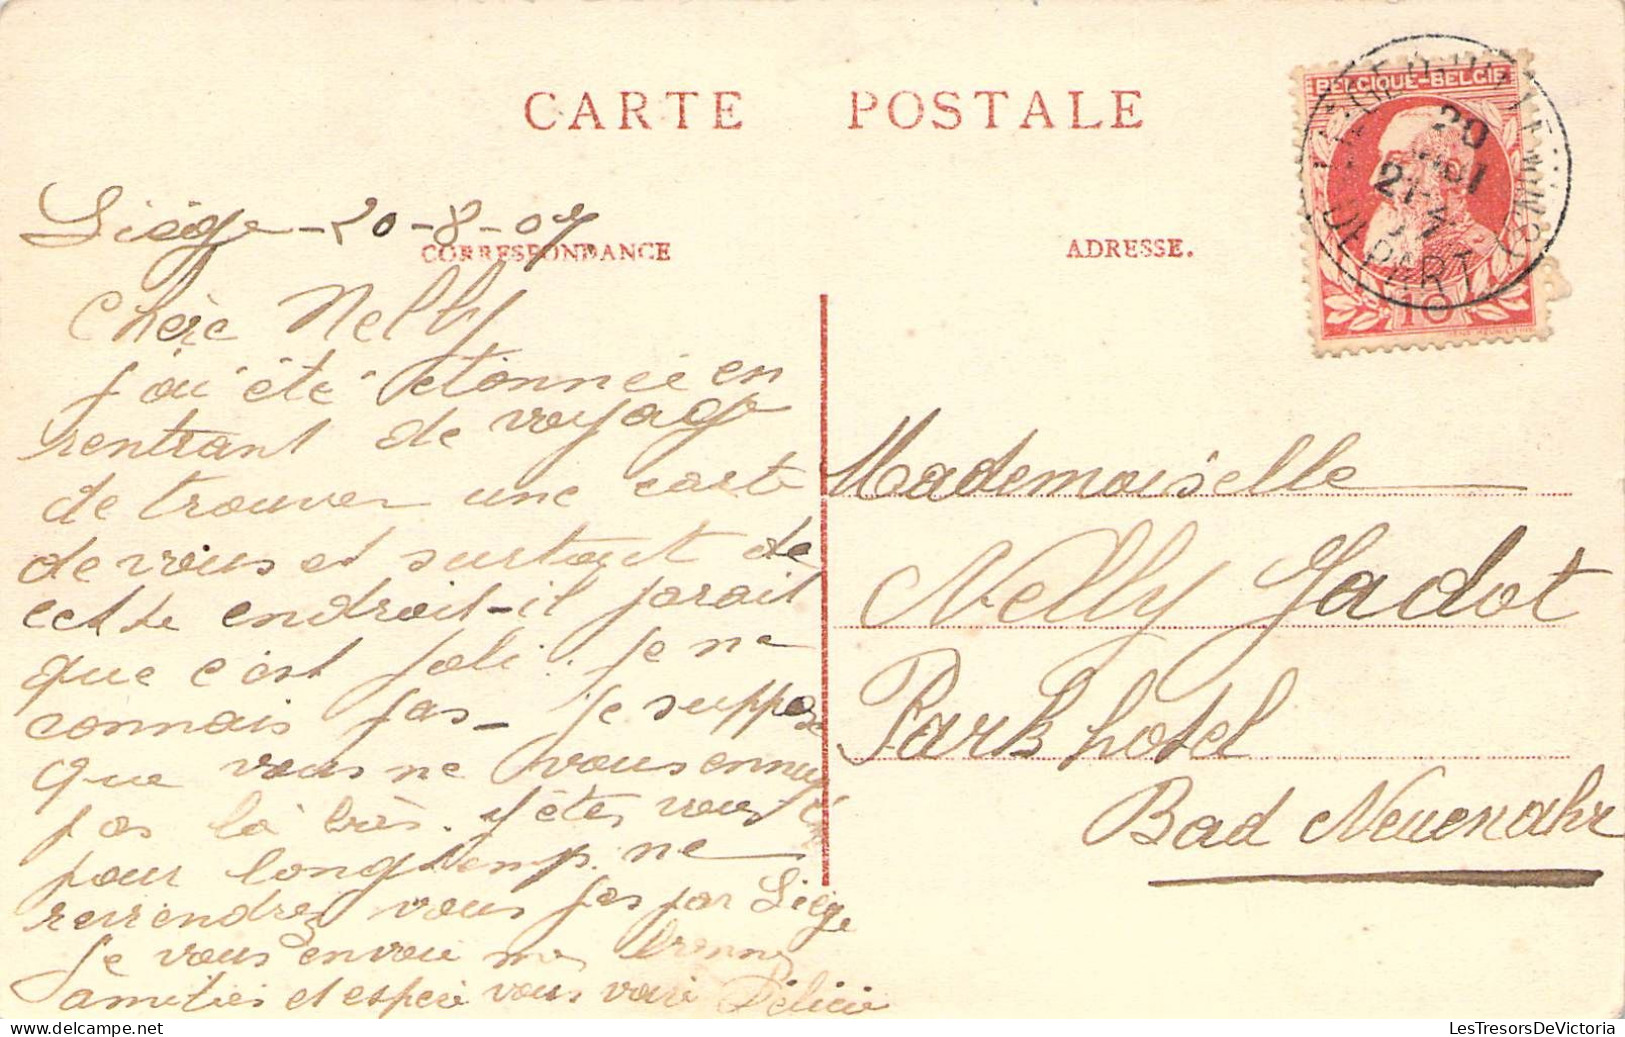 CARTE POSTALE
BELGIQUE-BELGIE
20
21-
DEPART
10
Liége - 20-8-07
CORRESPONDANCE
ADRESSE.
Chère Nelly
j'ai été étonnée en
rentrant de voyage
de trouver une carte
de vous et surtout de
cette endroit-il parait
que c'est joli. je ne
connais pas - je suppose
que vous ne vous ennuyez
pas là très. y êtes vous
pour longtemps. ne
reviendrez vous pas par Liége
Je vous envoie mes bonnes
amitiés et espère vous voir Félicie
Mademoiselle
Nelly Jadot
Park hotel
Bad Neuenahr
LesTresorsDeVictoria